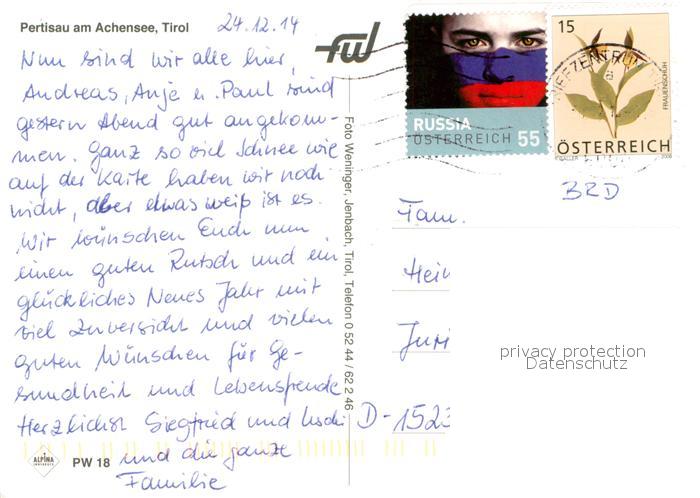 Pertisau am Achensee, Tirol
24.12.14
Nun sind wir alle hier,
Andreas, Anje u. Paul sind
gestern Abend gut angekom-
men. Ganz so viel Schnee wie
auf der Karte haben wir noch
nicht, aber etwas weiß ist es.
Wir wünschen Euch nun
einen guten Rutsch und ein
glückliches Neues Jahr mit
viel Zuversicht und vielen
guten Wünschen für Ge-
sundheit und Lebensfreude
Herzlichst Siegfried und Uschi
und die ganze
Familie
ALPINA
PW 18
fwl
Foto Weninger, Jenbach, Tirol, Telefon 0 52 44 / 62 2 46
RUSSIA
ÖSTERREICH 55
15
FRAUENSCHUH
ÖSTERREICH
2008
BRD
Fam.
Hein
Juri
D-1523
privacy protection
Datenschutz